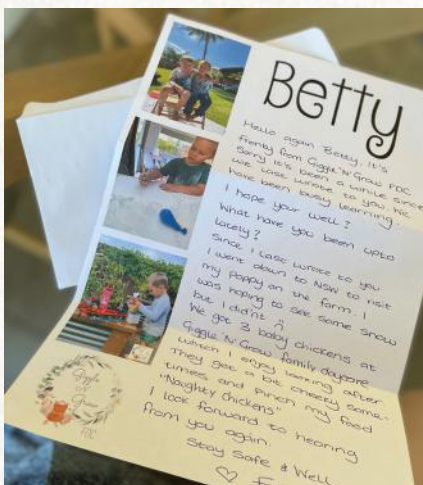 Betty
Hello again Betty. It's
from Giggle 'N' Grow FDC
Sorry it's been a while since
we last wrote to you. We
have been busy learning.
I hope your well?
What have you been upto
lately?
Since I last wrote to you
I went down to NSW to visit
my poppy on the farm. I
was hoping to see some snow
but I didn't :(
We got 3 baby chickens at
Giggle 'N' Grow family daycare
which I enjoy looking after
They get a bit cheeky some-
times and pinch my food
"Naughty Chickens"
I look forward to hearing
from you again.
Stay Safe & Well
♡ F
Giggle
N
Grow
FDC